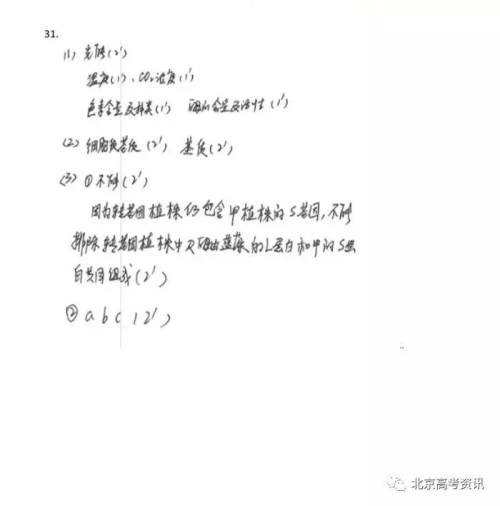 31.
(1) 光照(2')
温度(1')、CO₂浓度(1')
色素含量及种类(1') 酶的含量及活性(1')
(2) 细胞核基因(2') 基质(2')
(3) ①不能(2')
因为转基因植株仍包含甲植株的S基因,不能
排除转基因植株中R酶由蓝藻的L蛋白和甲的S蛋
白共同组成(2')
② a b c (2')
北京高考资讯